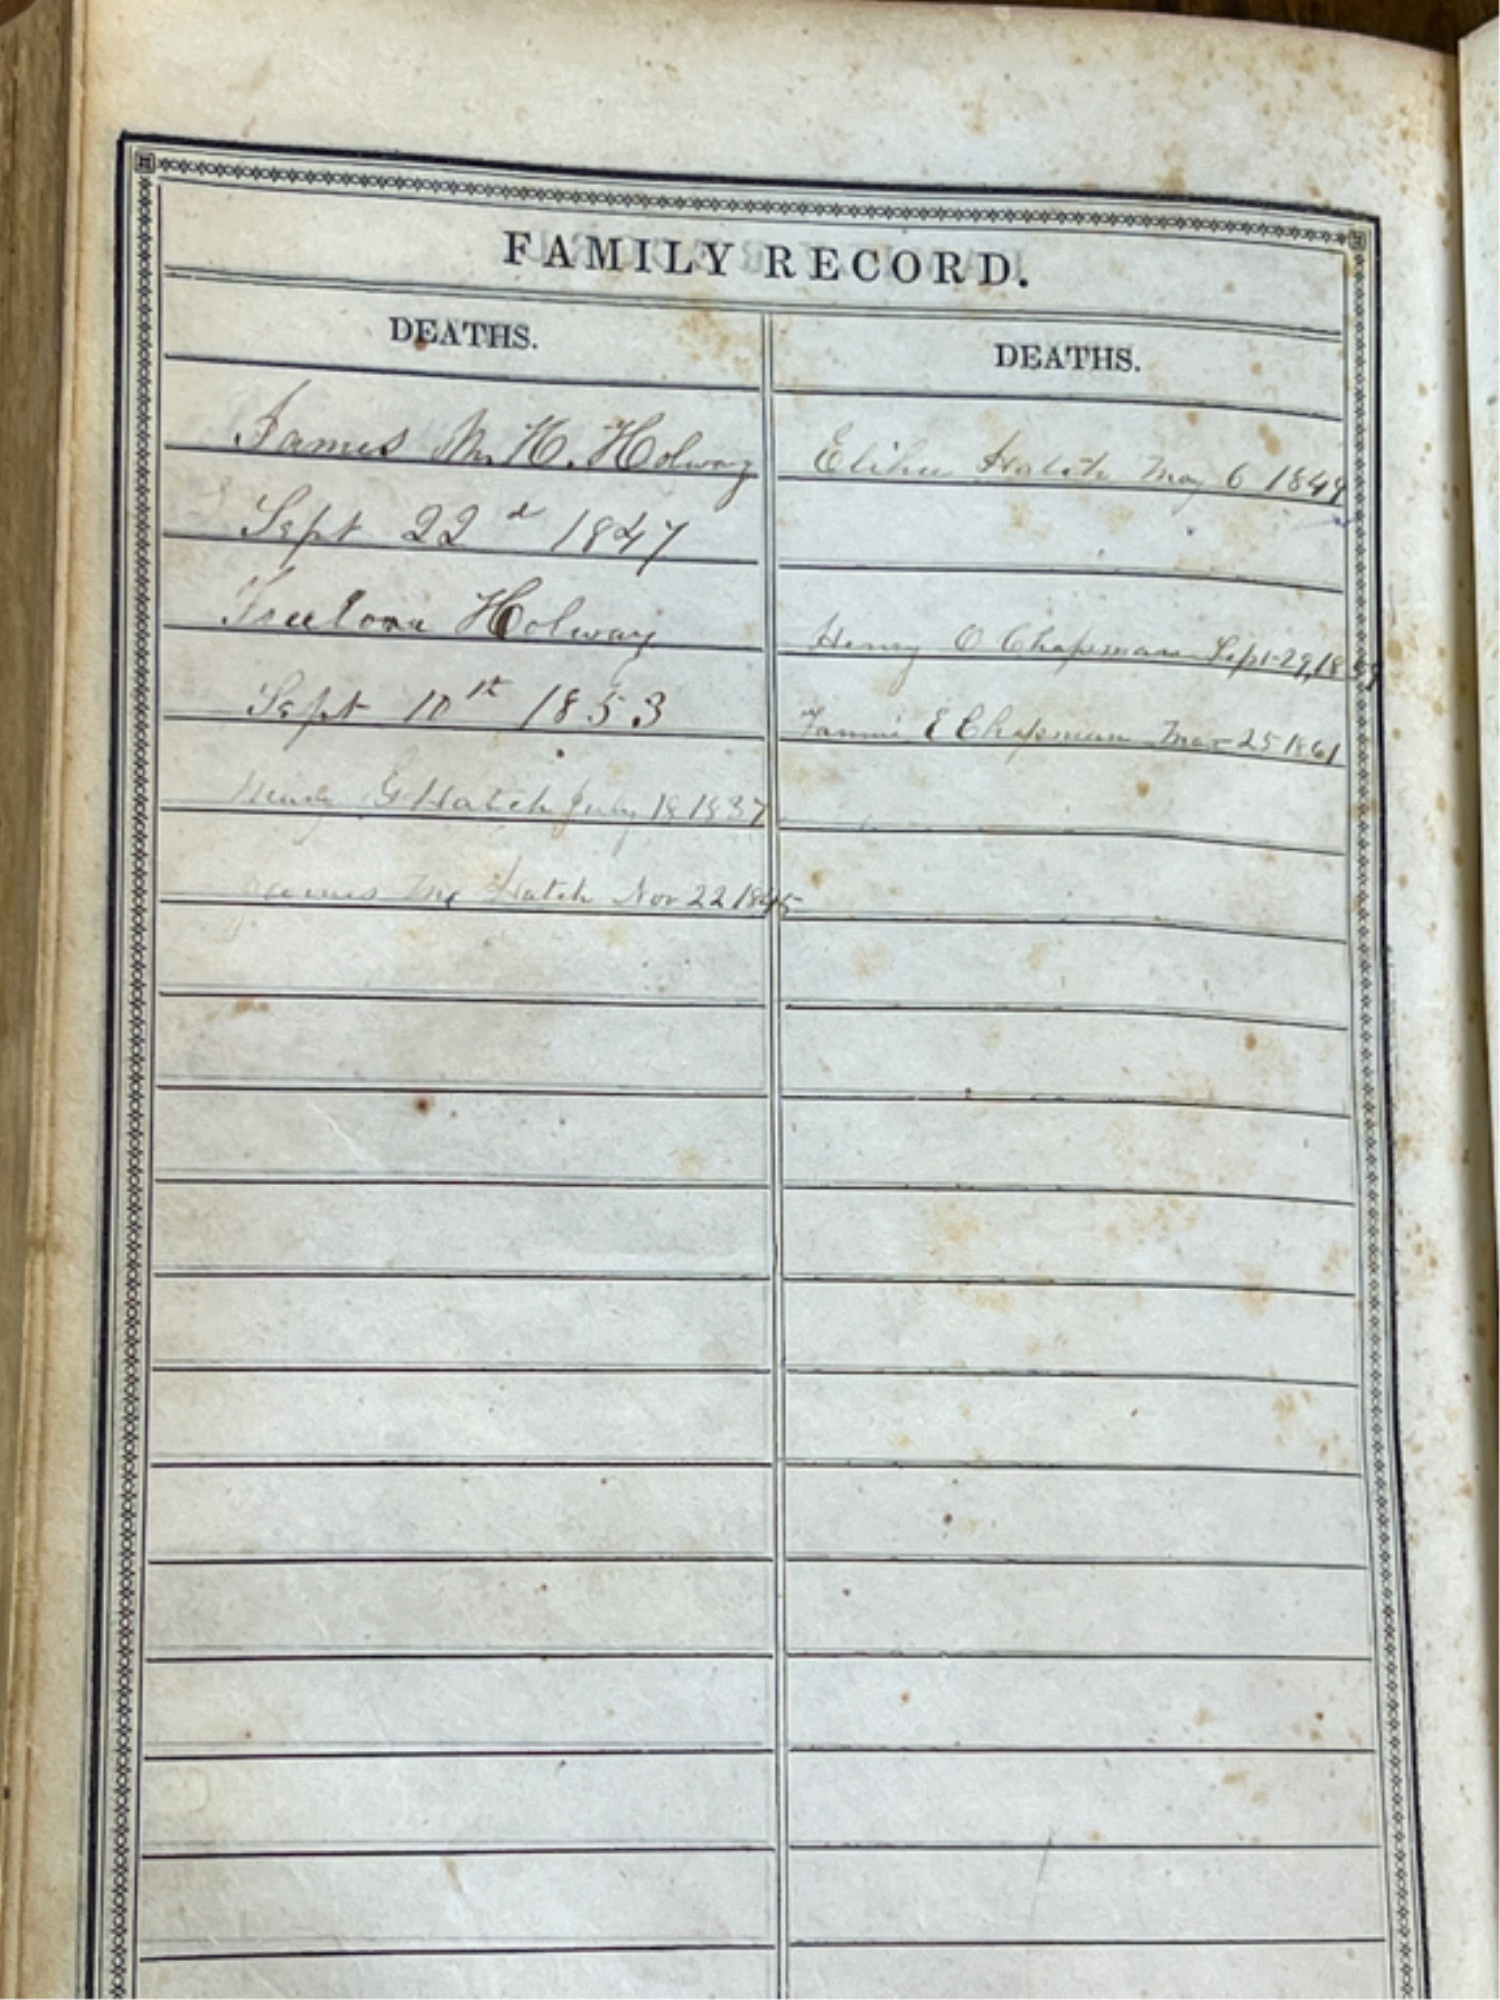 FAMILY RECORD.
DEATHS.
James M. H. Holway
Sept 22d 1847
Freelove Holway
Sept 10th 1853
G Hatch July 18 1837
James Mc Hatch Nov 22 1845
DEATHS.
Elihu Hatch May 6 1849
Henry O Chapman Sept 29, 18
Fannie E Chapman Mar 25 1861